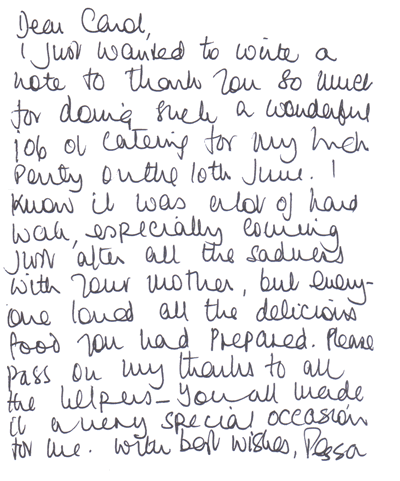 Dear Carol,
I just wanted to write a
note to thank you so much
for doing such a wonderful
job of catering for my lunch
Party on the 10th June. I
know it was a lot of hard
work, especially coming
just after all the sadness
with your mother, but every-
one loved all the delicious
food you had prepared. Please
pass on my thanks to all
the helpers - you all made
it a very special occasion
for me. With best wishes,